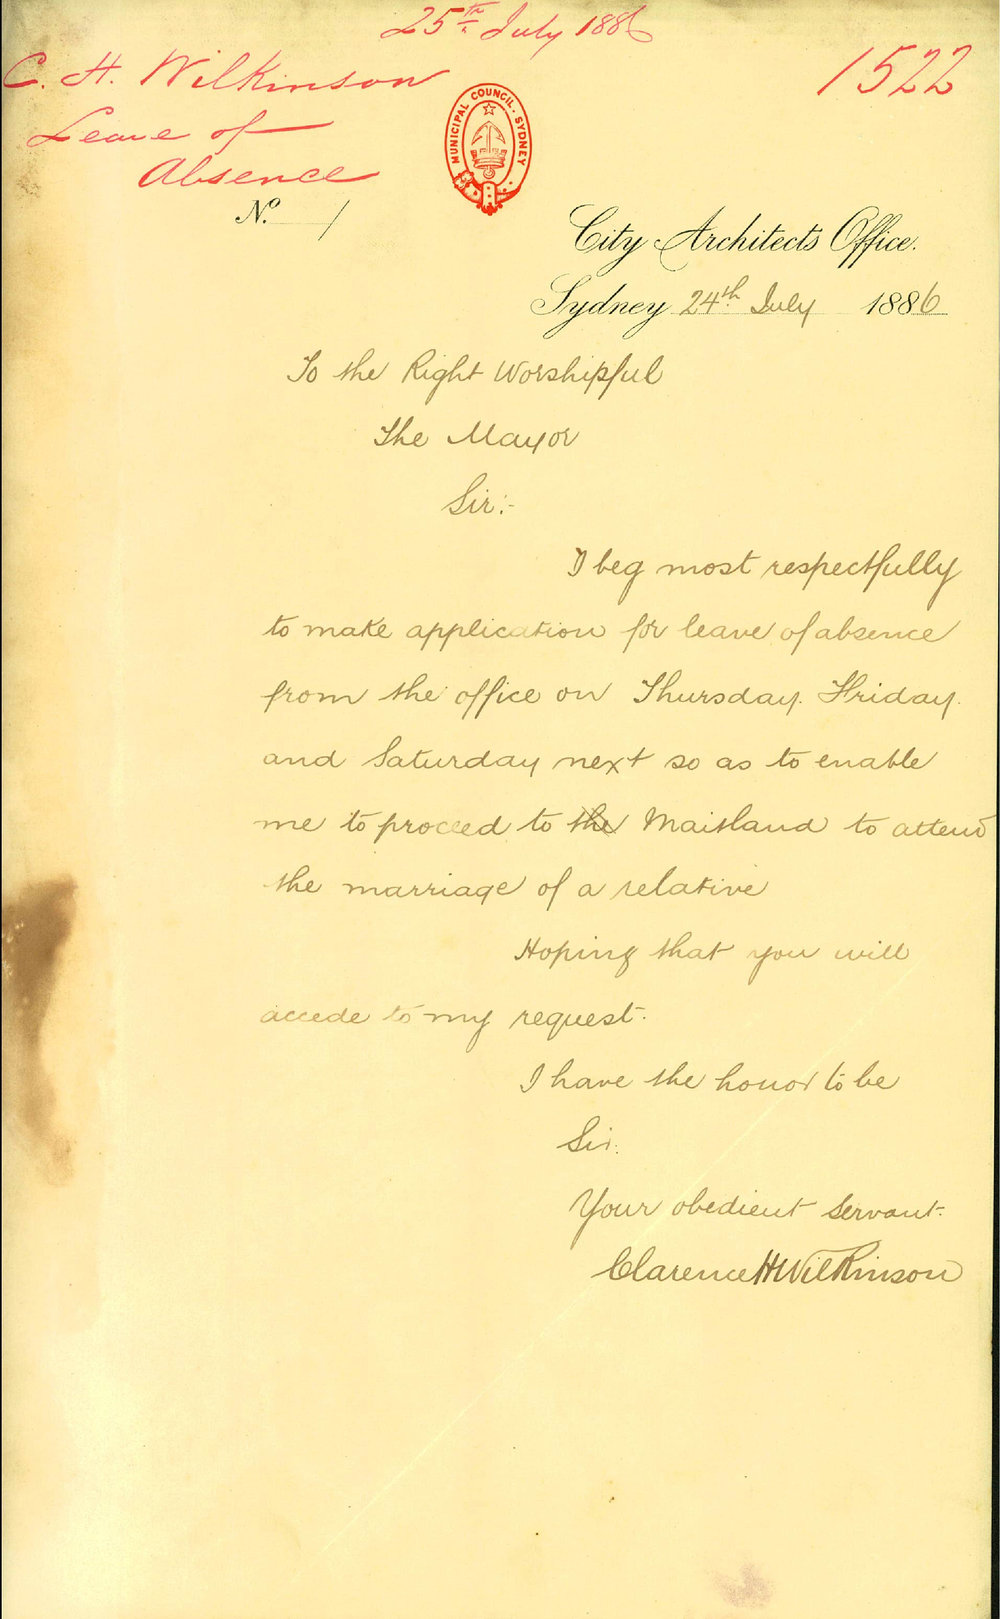 25th July 1886
C. H. Wilkinson
Leave of
Absence
1522
MUNICIPAL COUNCIL. SYDNEY
No. /
City Architects Office.
Sydney 24th July 1886
To the Right Worshipful
The Mayor
Sir:-
I beg most respectfully
to make application for leave of absence
from the office on Thursday. Friday.
and Saturday next so as to enable
me to proceed to the Maitland to attend
the marriage of a relative
Hoping that you will
accede to my request.
I have the honor to be
Sir.
Your obedient Servant.
Clarence H Wilkinson